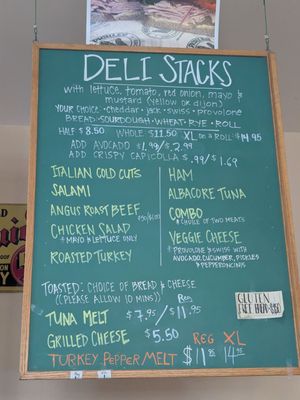 DELI STACKS
with lettuce, tomato, red onion, mayo &
mustard (yellow or dijon)
YOUR CHOICE • cheddar • jack • swiss • provolone
BREAD • SOURDOUGH • WHEAT • RYE • ROLL
HALF $8.50 WHOLE $11.50 XL ON A ROLL $14.95
ADD AVOCADO $1.99/$2.99
ADD CRISPY CAPICOLLA $.99/$1.69
ITALIAN COLD CUTS
SALAMI
ANGUS ROAST BEEF
CHICKEN SALAD
* MAYO & LETTUCE ONLY
ROASTED TURKEY
HAM
ALBACORE TUNA
COMBO
* CHOICE OF TWO MEATS
VEGGIE CHEESE
* PROVOLONE & SWISS WITH
AVOCADO, CUCUMBER, PICKLES
& PEPPERONCINIS
TOASTED: CHOICE OF BREAD & CHEESE
((PLEASE ALLOW 10 MINS)) REG
TUNA MELT $7.95/$11.95
GRILLED CHEESE $5.50
REG XL
TURKEY PEPPER MELT $11.95 14.95
GLUTEN
FREE